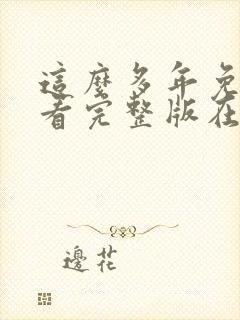 這麼多年免
看完整版在
邊花